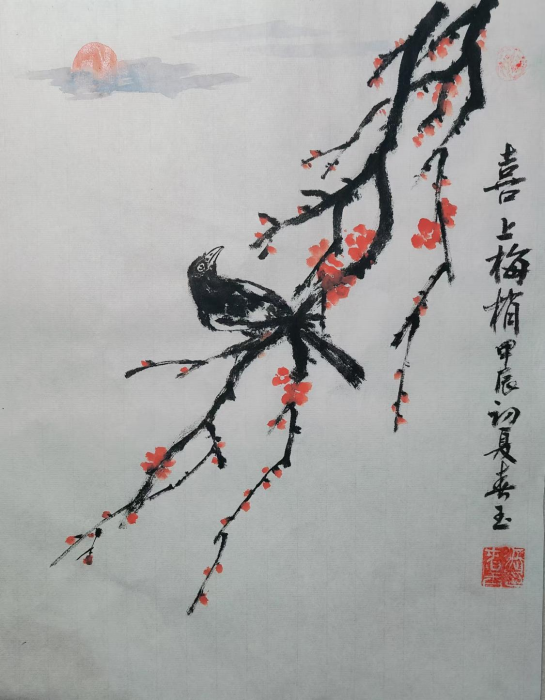 喜上梅梢甲辰初夏春玉